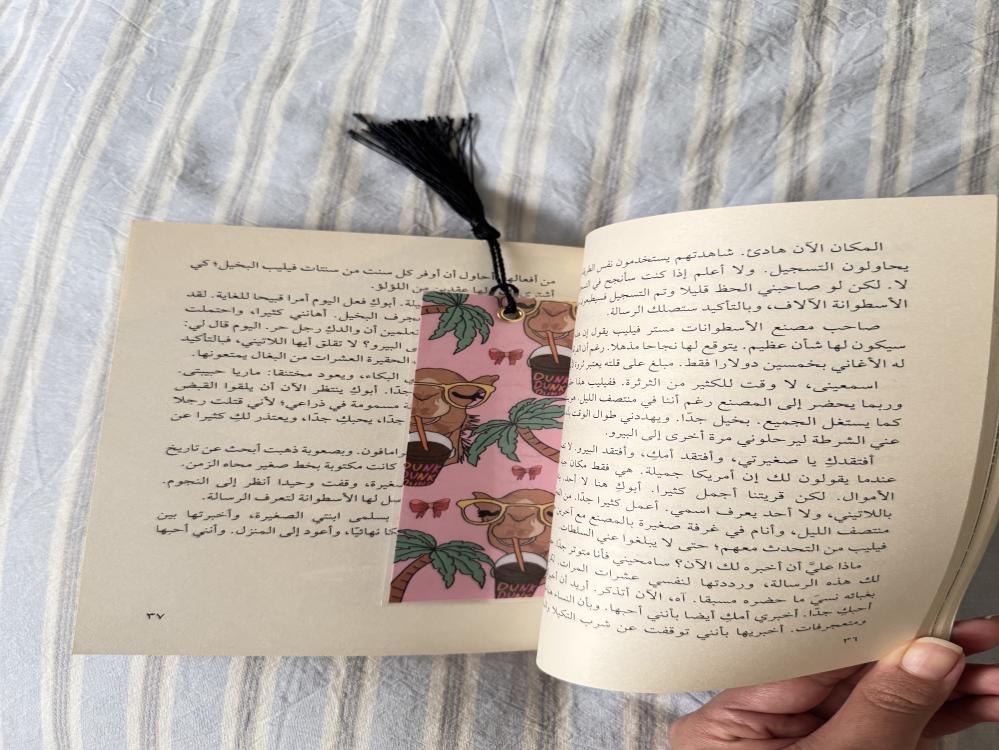 المكان الآن هادئ. شاهدتهم يستخدمون نفس
يحاولون التسجيل. ولا أعلم إذا كنت سأنجح في
لا. لكن لو صاحبني الحظ قليلا وتم التسجيل
الأسطوانة الآلاف، وبالتأكيد ستصلك الرسالة.
صاحب مصنع الأسطوانات مستر فيليب يقول إن
سيكون لها شأن عظيم. يتوقع لها نجاحا مذهلا. رغم أن
له الأغاني بخمسين دولارا فقط. مبلغ على قلته يعتبر
اسمعيني، لا وقت للكثير من الثرثرة. ففيليب هنا
وربما يحضر إلى المصنع رغم أننا في منتصف الليل.
كما يستغل الجميع. بخيل جدًا. ويهددني طوال الوقت
عني الشرطة ليرحلوني مرة أخرى إلى البيرو.
أفتقدكِ يا صغيرتي، وأفتقد أمكِ، وأفتقد البيرو.
عندما يقولون لك إن أمريكا جميلة. هي فقط مكان
الأموال. لكن قريتنا أجمل كثيرا. أبوكِ هنا لا أحد
باللاتيني، ولا أحد يعرف اسمي. أعمل كثيرا جدًا. من
منتصف الليل، وأنام في غرفة صغيرة بالمصنع مع
فيليب من التحدث معهم؛ حتى لا يبلغوا عني السلطات
ماذا عليَّ أن أخبره لك الآن؟ سامحيني فأنا متوتر جدًا
لك هذه الرسالة، ورددتها لنفسي عشرات المرات.
بغبائه نسيَ ما حضره مسبقا. آه، الآن أتذكر. أريد أن
أحبك جدًا. أخبري أمكِ أيضا بأنني أحبها. وبأن النساء
ومتعجرفات. أخبريها بأنني توقفت عن شرب التكيلا
٣٦
من أفعالها أحاول أن أوفر كل سنت من سنتات فيليب البخيل؛ كي
لها عقدين من اللؤلؤ.
أبوكِ فعل اليوم أمرا قبيحا للغاية. لقد
البخيل. أهانني كثيرا، واحتملت
تعلمين أن والدكِ رجل حر. اليوم قال لي:
البيرو؟ لا تقلق أيها اللاتيني، فبالتأكيد
الحقيرة العشرات من البغال يمتعونها.
البكاء، ويعود مختنقا: ماريا حبيبتي.
أبوكِ ينتظر الآن أن يلقوا القبض
مسمومة في ذراعي؛ لأني قتلت رجلا
جدًا، يحبكِ جدًا، ويعتذر لكِ كثيرا عن
وبصعوبة ذهبت أبحث عن تاريخ
كانت مكتوبة بخط صغير محاه الزمن.
وقفت وحيدا أنظر إلى النجوم.
لها الأسطوانة لتعرف الرسالة.
بسلمى ابنتي الصغيرة، وأخبرتها بين
نهائيًا، وأعود إلى المنزل. وأنني أحبها
٣٧
DUNK
DUNK
DUNK
DUNK
DUNK
DUNK